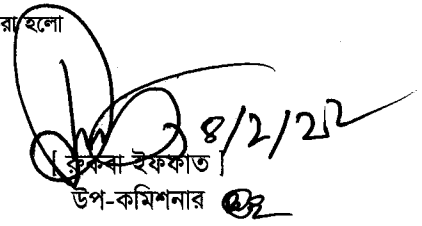 রা হলো
৪/2/22
[ রুকবা ইফফাত ]
উপ-কমিশনার